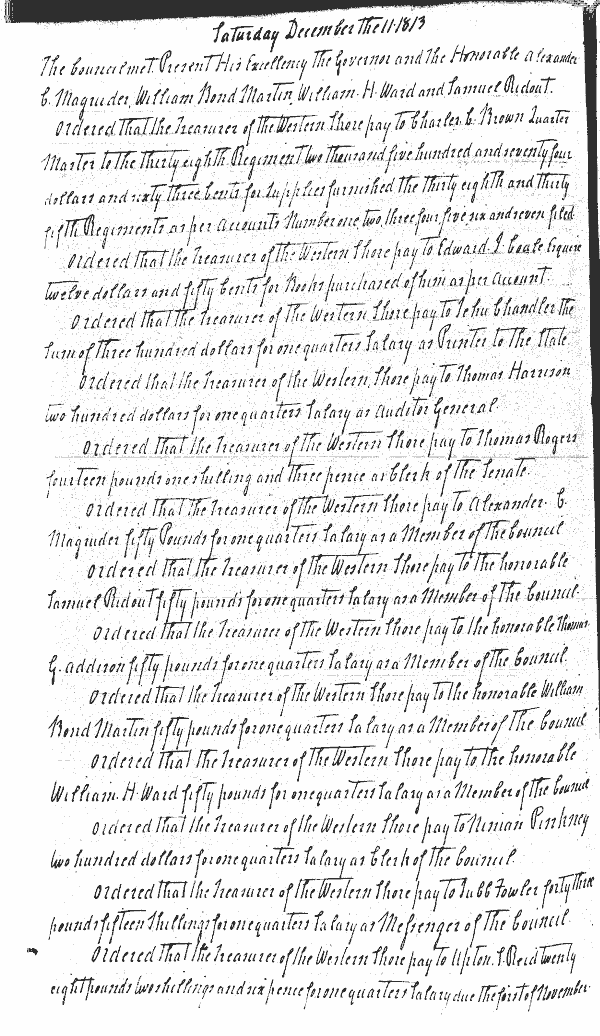 Saturday December the 11. 1813
The Council met. Present His Excellency The Governor and The Honorable Alexander
C. Magruder, William Bond Martin, William. H. Ward and Samuel Ridout.
Ordered that the Treasurer of the Western Shore pay to Charles. C. Brown Quarter
Master to the thirty eighth Regiment two thousand five hundred and seventy four
dollars and sixty three Cents for Supplies furnished the thirty eighth and thirty
fifth Regiments as per Accounts Number one two, three four five six and seven filed
Ordered that the Treasurer of the Western Shore pay to Edward. J. Coale Esquire
twelve dollars and fifty Cents for Books purchased of him as per Account.
Ordered that the Treasurer of the Western Shore pay to John Chandler the
Sum of three hundred dollars for one quarters Salary as Printer to the State
Ordered that the Treasurer of the Western, Shore pay to Thomas Harrison
two hundred dollars for one quarters Salary as Auditor General.
Ordered that the Treasurer of the Western Shore pay to Thomas Rogers
fourteen pounds one shilling and three pence as Clerk of the Senate.
Ordered that the Treasurer of the Western Shore pay to Alexander. C.
Magruder fifty Pounds for one quarters Salary as a Member of the Council
Ordered that the Treasurer of the Western Shore pay to the honorable
Samuel Ridout fifty pounds for one quarters Salary as a Member of the Council.
Ordered that the Treasurer of the Western Shore pay to the honorable Thomas
G. Addison fifty pounds for one quarters Salary as a Member of the Council.
Ordered that the Treasurer of the Western Shore pay to the honorable William
Bond Martin fifty pounds for one quarters Salary as a Member of the Council
Ordered that the Treasurer of the Western Shore pay to the honorable
William. H. Ward fifty pounds for one quarters Salary as a Member of the Council
Ordered that the Treasurer of the Western Shore pay to Ninian Pinkney
two hundred dollars for one quarters Salary as Clerk of the Council.
Ordered that the Treasurer of the Western Shore pay to Jubb Fowler forty three
pounds fifteen Shillings for one quarters Salary as Messenger of the Council
Ordered that the Treasurer of the Western Shore pay to Upton. S. Reid twenty
eight pounds two shillings and six pence for one quarters Salary due the first of November